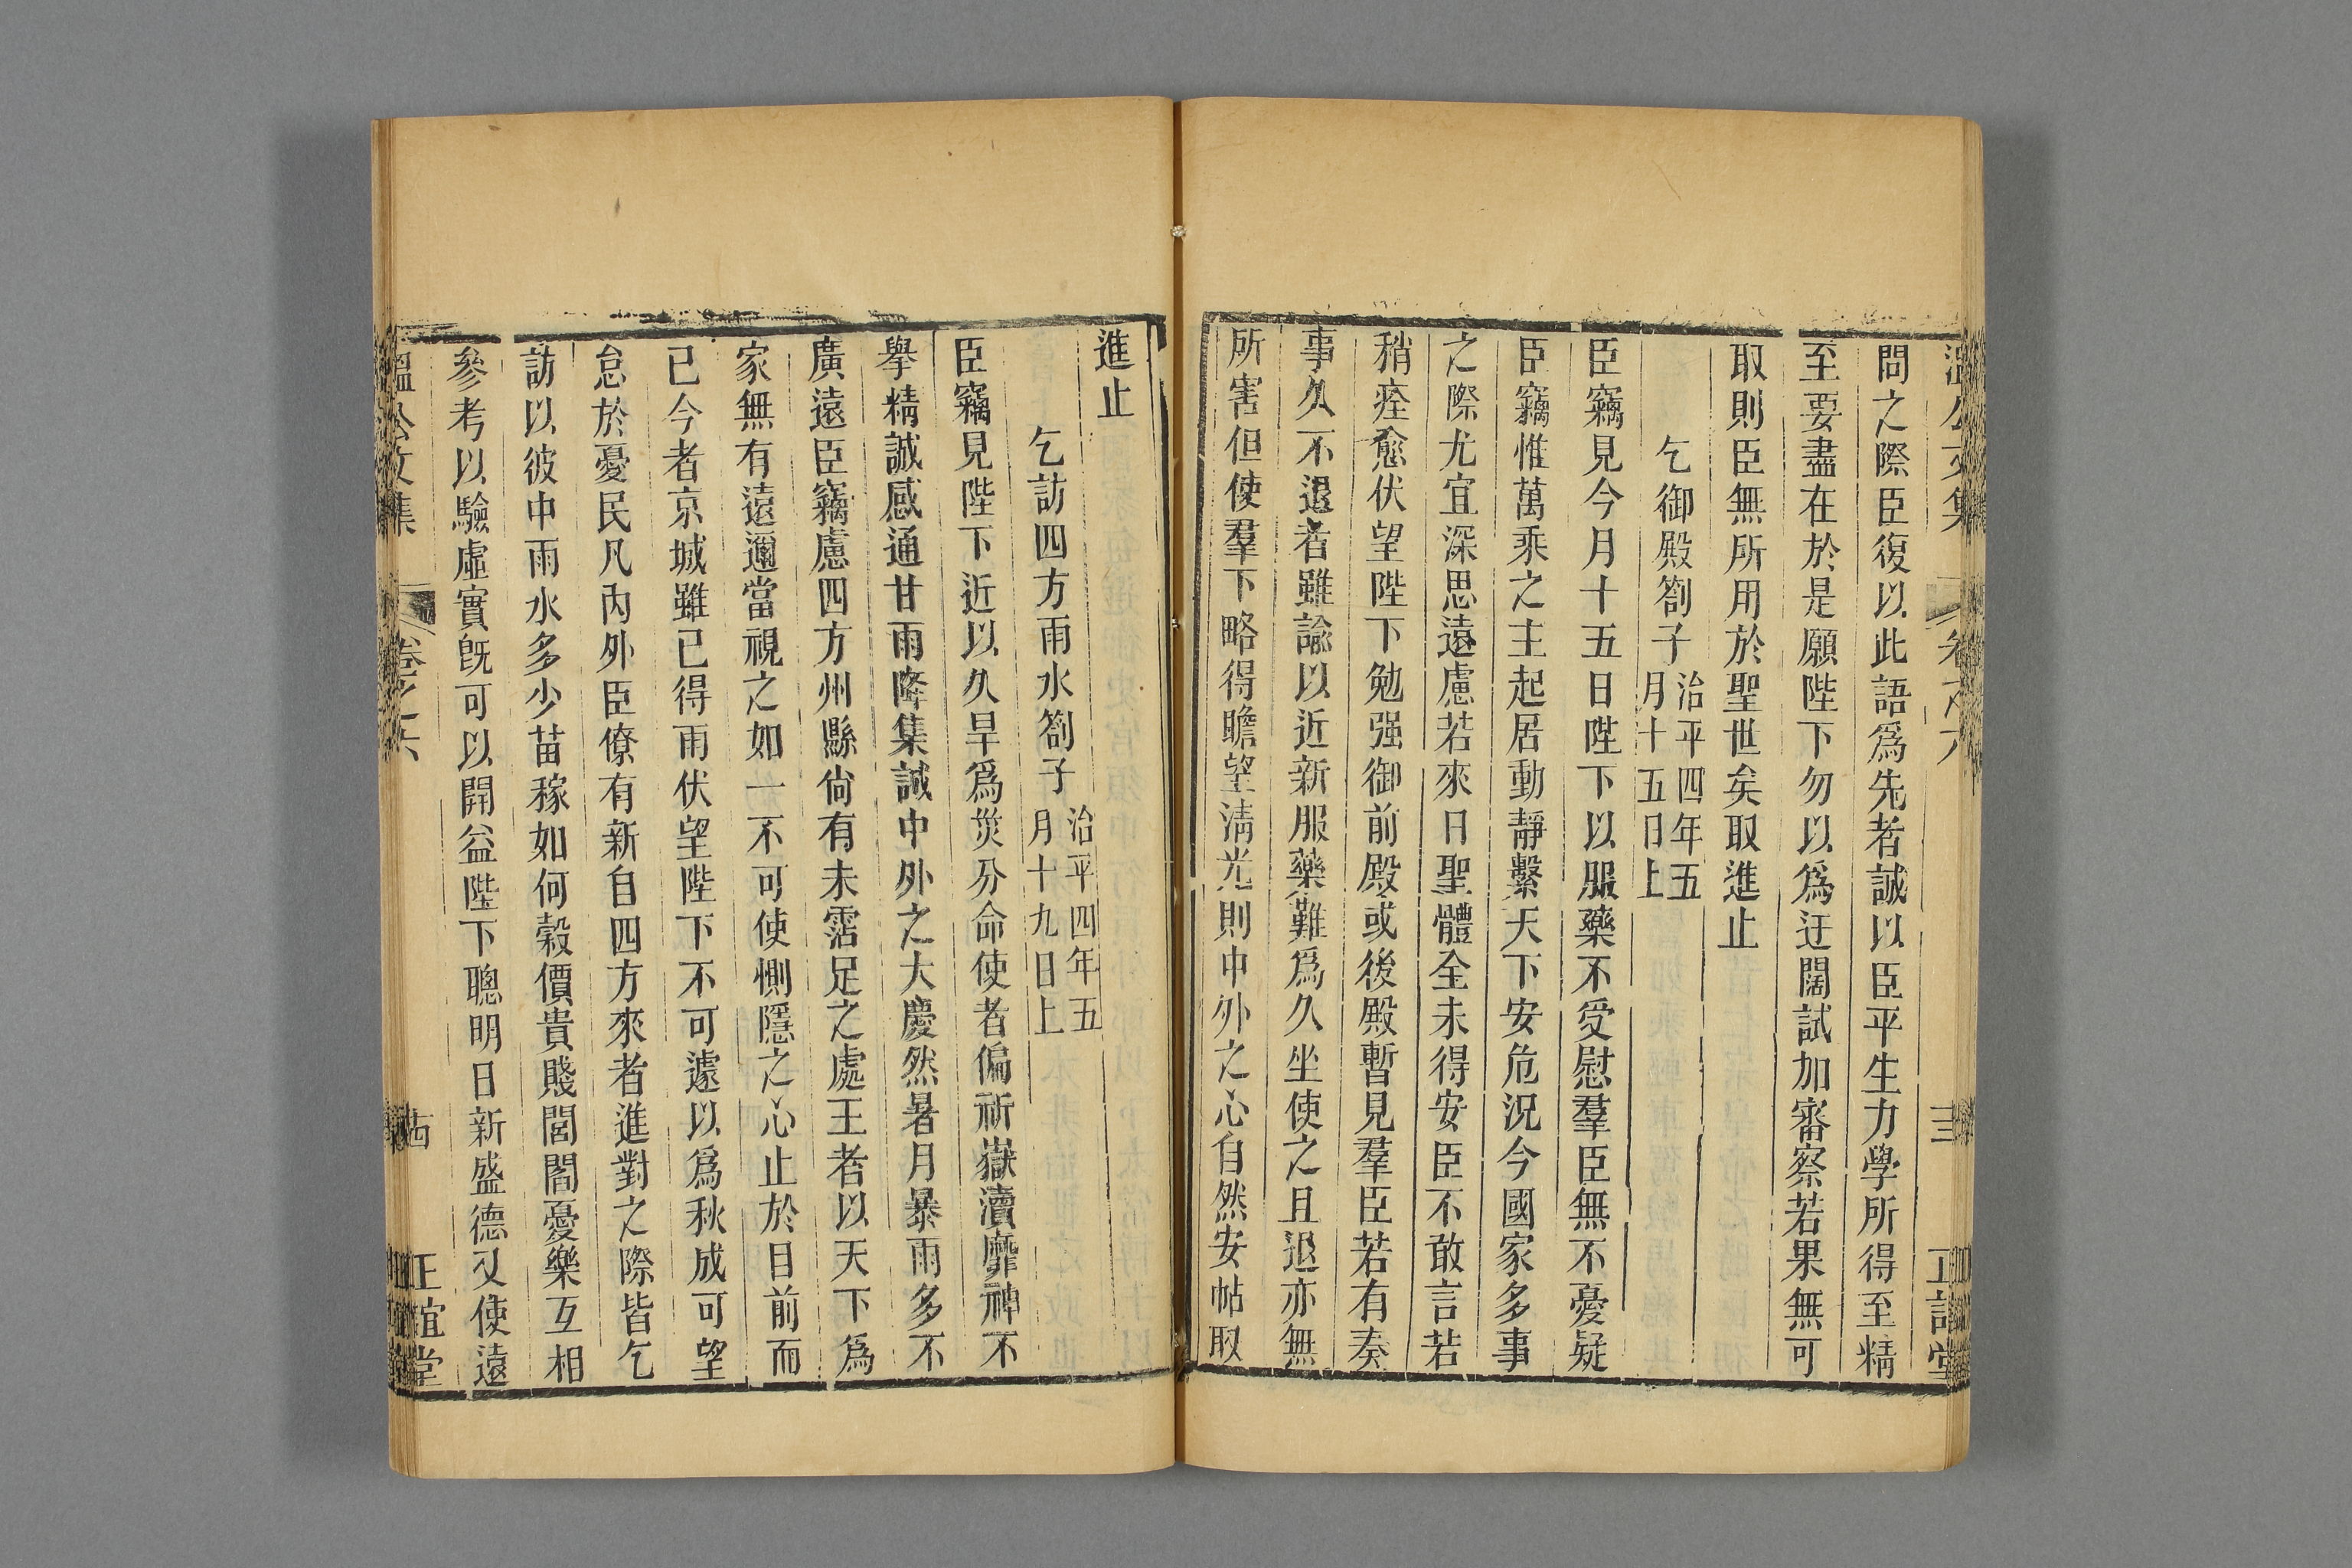 溫公文集 卷之六 三 正誼堂
問之際臣復以此語爲先者誠以臣平生力學所得至精
至要盡在於是願陛下勿以爲迂闊試加審察若果無可
取則臣無所用於聖世矣取進止
乞御殿劄子治平四年五月十五日上
臣竊見今月十五日陛下以服藥不受慰羣臣無不憂疑
臣竊惟萬乘之主起居動靜繫天下安危況今國家多事
之際尤宜深思遠慮若來日聖體全未得安臣不敢言若
稍痊愈伏望陛下勉强御前殿或後殿暫見羣臣若有奏
事久不退者雖諭以近新服藥難爲久坐使之且退亦無
所害但使羣下略得瞻望淸光則中外之心自然安帖取
進止
乞訪四方雨水劄子治平四年五月十九日上
臣竊見陛下近以久旱爲災分命使者徧祈嶽瀆靡神不
舉精誠感通甘雨降集誠中外之大慶然暑月暴雨多不
廣遠臣竊慮四方州縣尙有未霑足之處王者以天下爲
家無有遠邇當視之如一不可使惻隱之心止於目前而
已今者京城雖已得雨伏望陛下不可遽以爲秋成可望
怠於憂民凡內外臣僚有新自四方來者進對之際皆乞
訪以彼中雨水多少苗稼如何穀價貴賤閭閻憂樂互相
參考以驗虛實旣可以開益陛下聰明日新盛德又使遠
溫公文集 卷之六 正誼堂